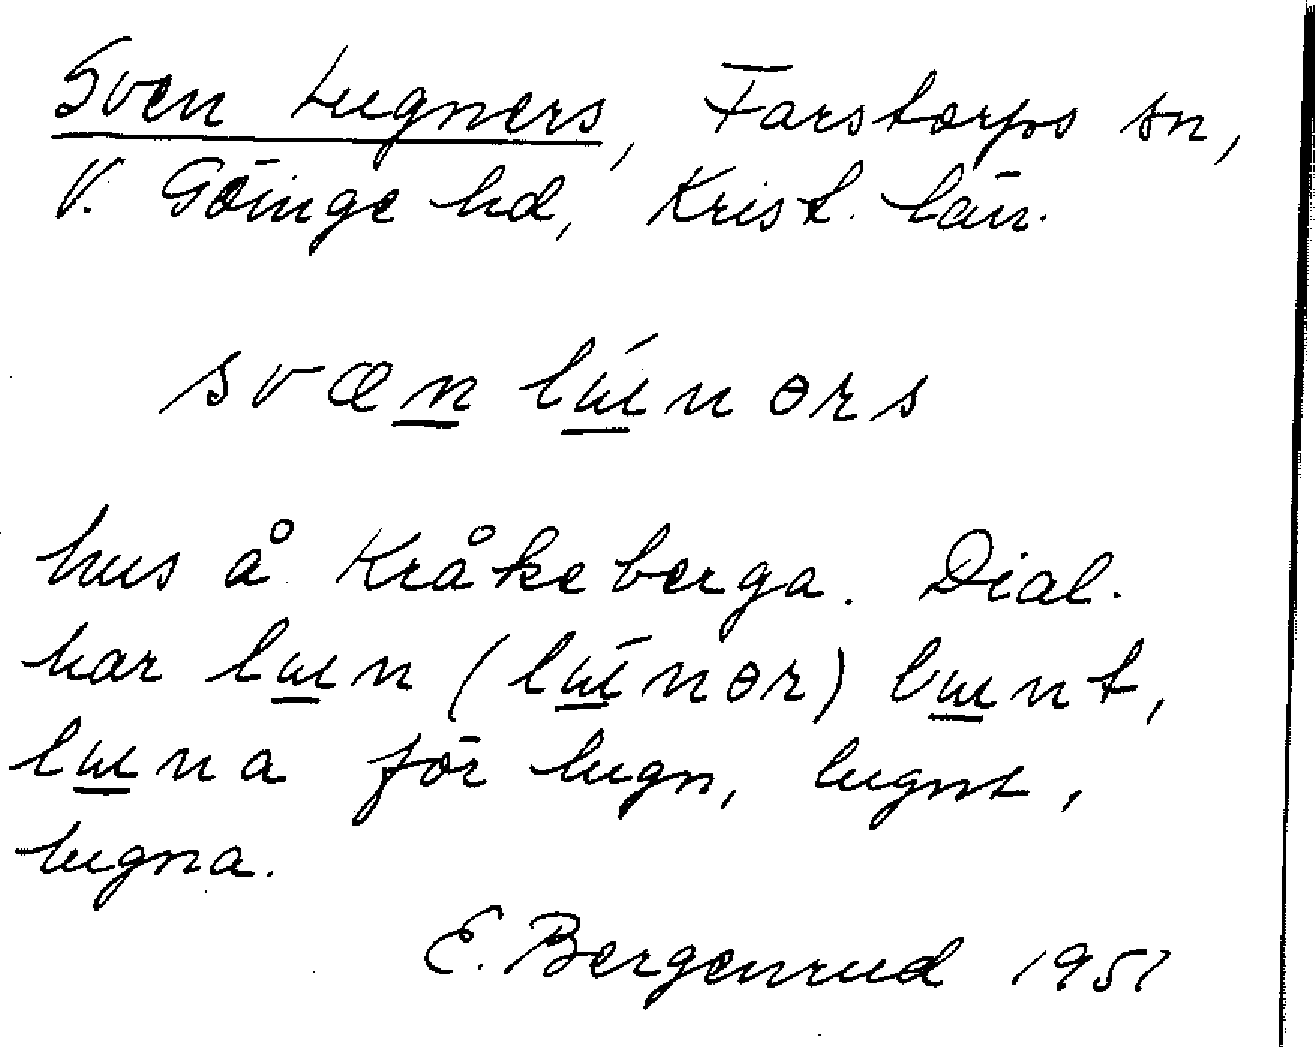 Sven Lugners, Farstorps sn,
V. Göinge hd, Krist. län.
svæn lɯ́nərs
hus å Kråkeberga. Dial.
har lɯn (lɯ́nər) lɯnt,
lɯna för lugn, lugnt,
lugna.
E. Bergenrud 1951